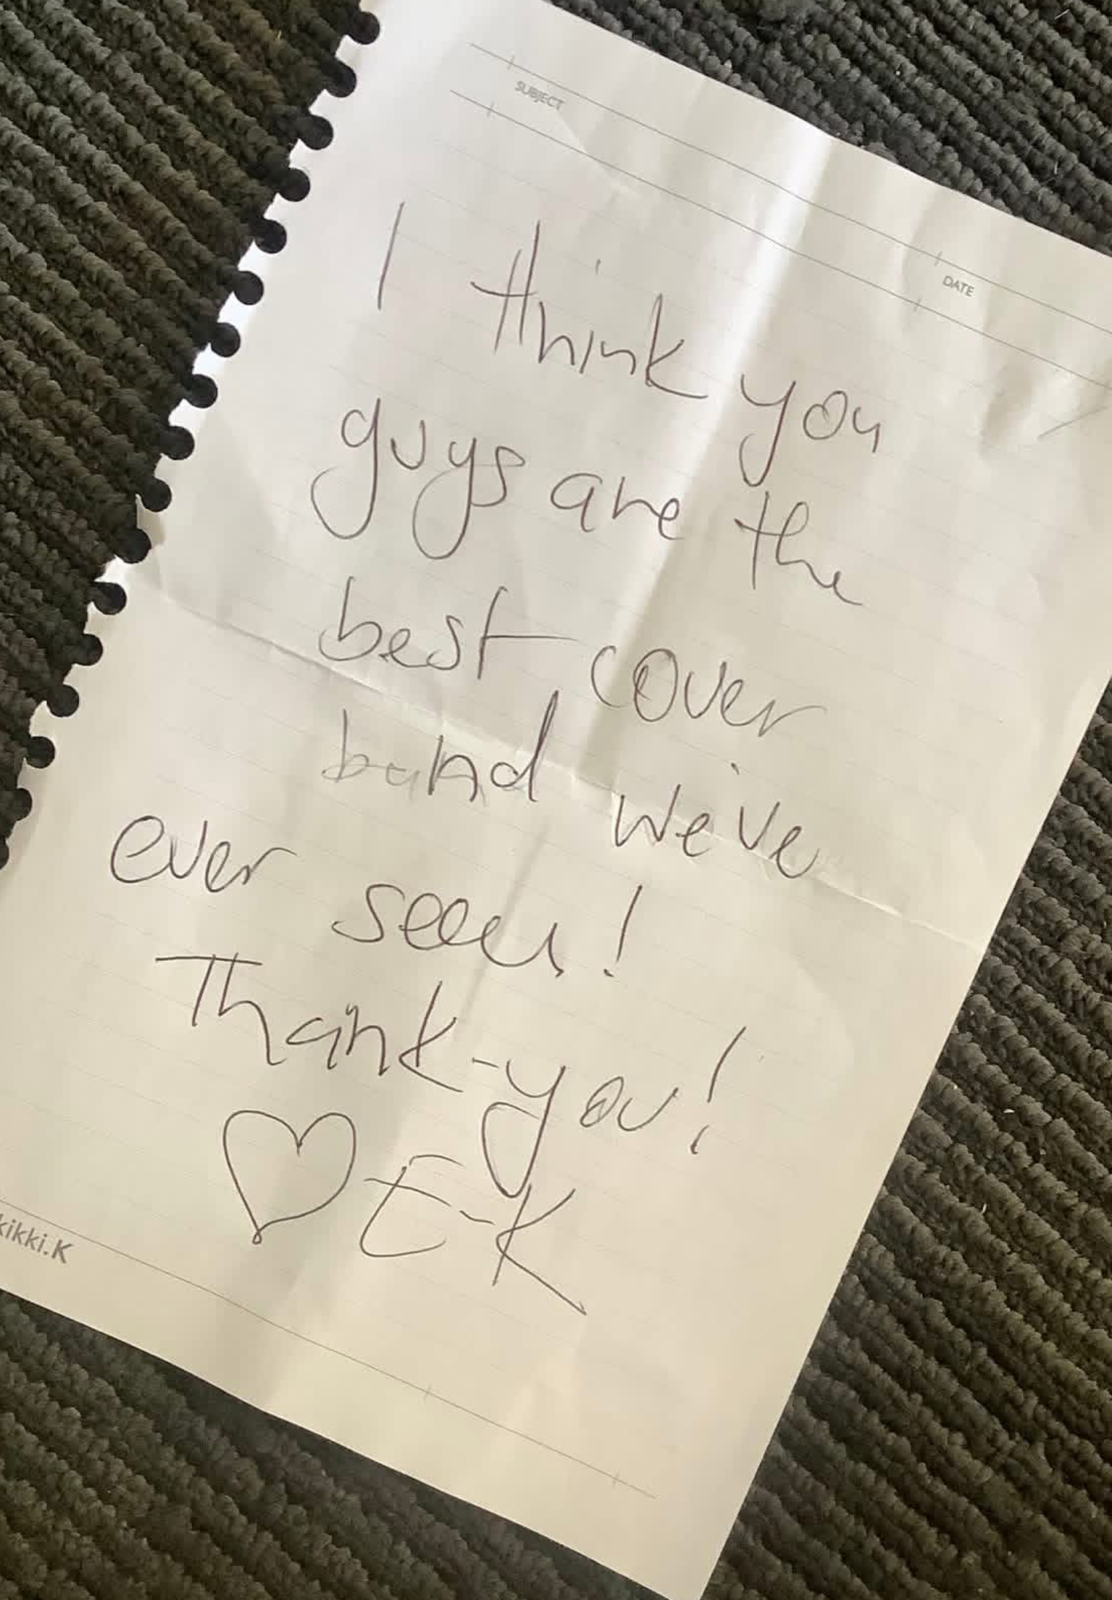 SUBJECT
DATE
I think you
guys are the
best cover
band we've
ever seen!
Thank-you!
♡ E-K
kikki.K